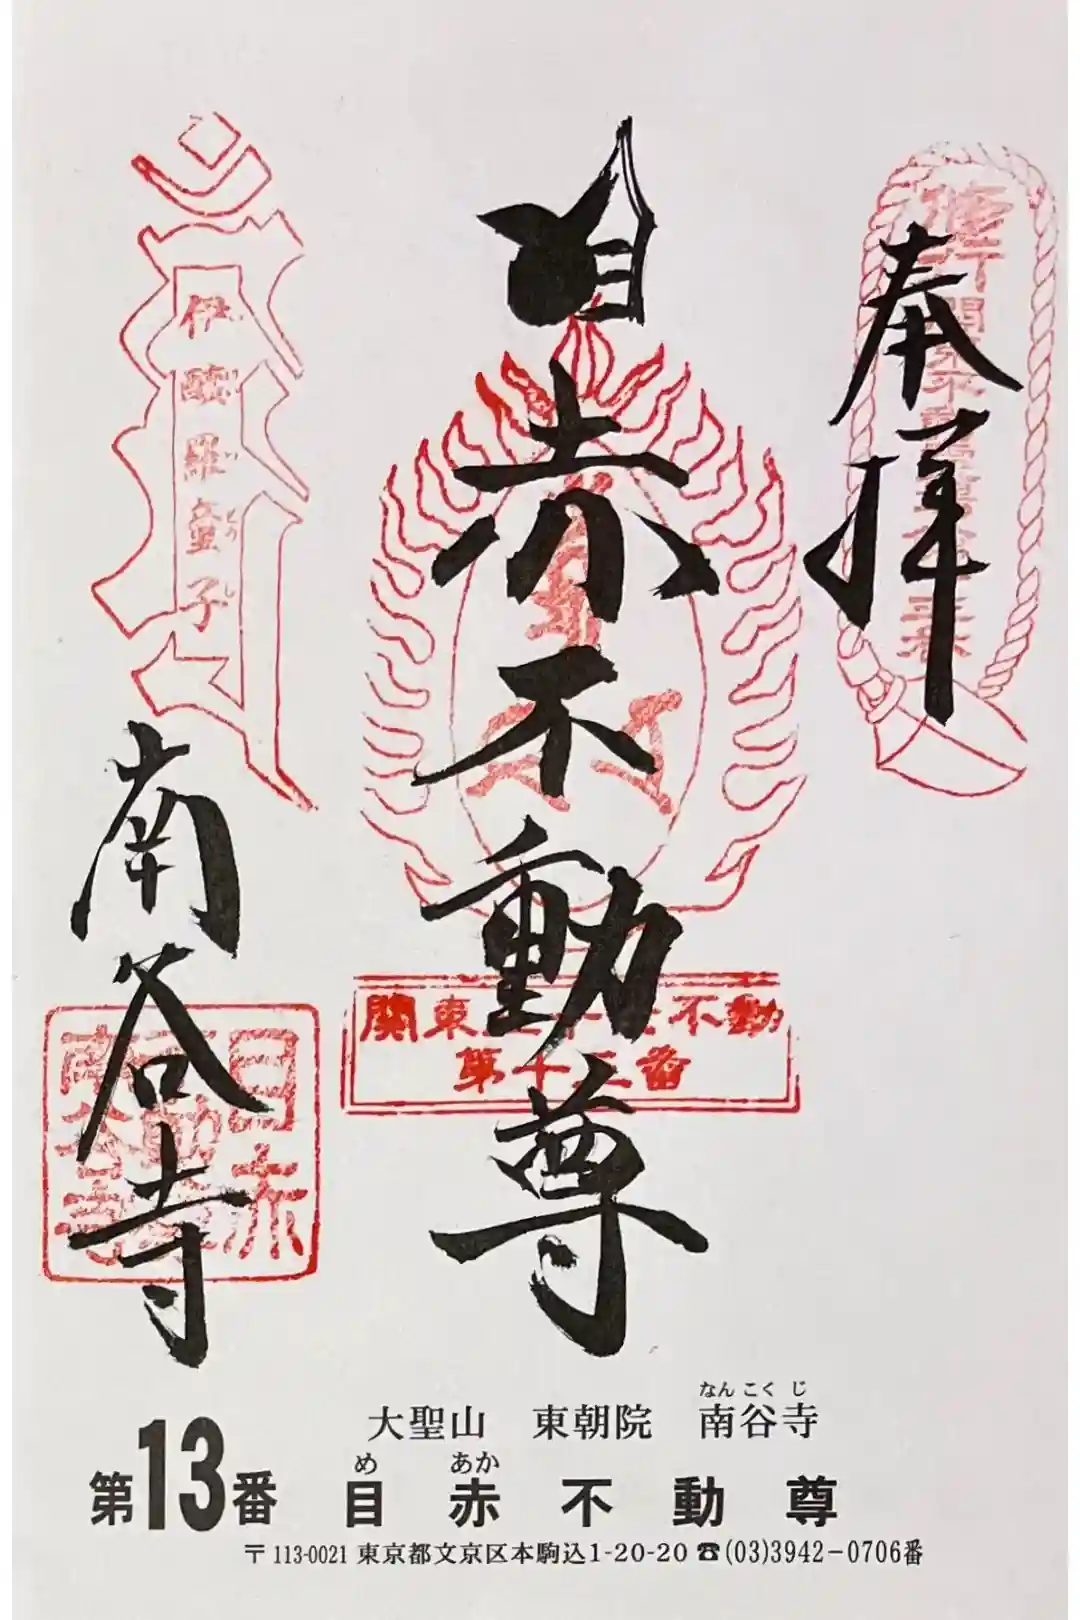 奉拝
目赤不動尊
伊醯羅童子
い
けい
ら
どう
じ
南谷寺
関東三十六不動
第十三番
目赤
不動尊
南谷寺
なんこくじ
大聖山 東朝院 南谷寺
第13番
め あか
目赤不動尊
〒113-0021 東京都文京区本駒込1-20-20 ☎(03)3942-0706番